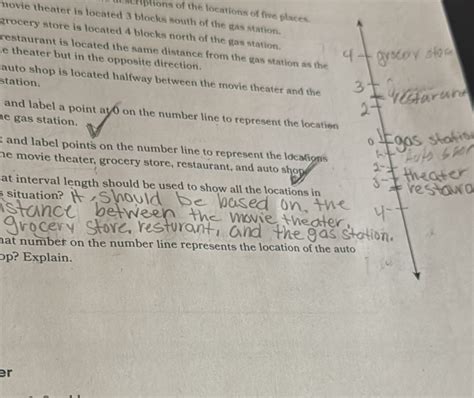 descriptions of the locations of five places.
movie theater is located 3 blocks south of the gas station.
grocery store is located 4 blocks north of the gas station.
restaurant is located the same distance from the gas station as the
e theater but in the opposite direction.
auto shop is located halfway between the movie theater and the
station.
and label a point at 0 on the number line to represent the location
he gas station.
and label points on the number line to represent the locations
he movie theater, grocery store, restaurant, and auto shop.
at interval length should be used to show all the locations in
s situation? It should be based on the
istance between the movie theater,
grocery store, resturant, and the gas station.
hat number on the number line represents the location of the auto
op? Explain.
er
4 grocery store
3
restarura
2
0 gas station
auto shop
2 theater
3 restaura
4